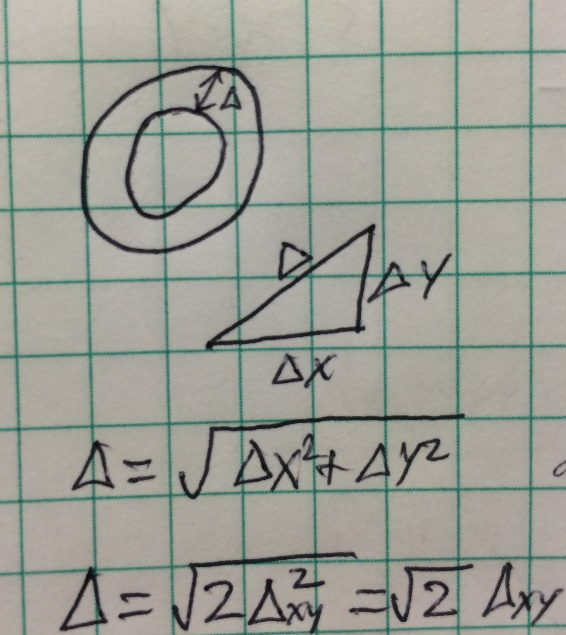 Δ
Δ
ΔY
ΔX
Δ = √(ΔX² + ΔY²)
Δ = √(2Δ²xy) = √2 Δxy